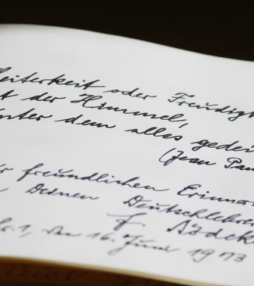 Heiterkeit oder Freudigk
t der Himmel,
unter dem alles gedei
(Jean Pau
r freundlichen Erinner
Deinen Deutschlehrer
F.
r. 1, den 16. Juni 1973